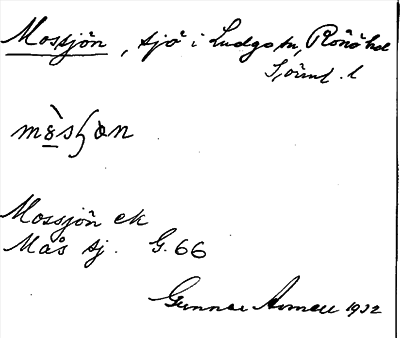 Mossjön, sjö i Ludgo sn, Rönö hd
Sörml. l
mòsʃɷn
Mossjön ek
Mås sj. G. 66
Gunnar 1932